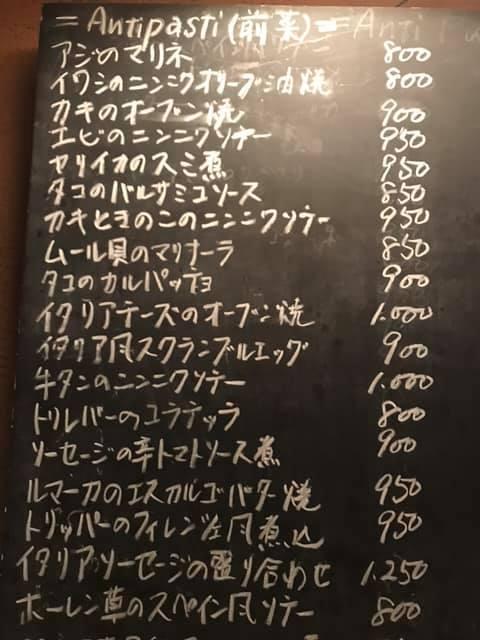 = Antipasti (前菜) =
アジのマリネ 800
イワシのニンニクオリーブ油焼 800
カキのオーブン焼 900
エビのニンニクソテー 950
ヤリイカのスミ煮 950
タコのバルサミコソース 850
カキときのこのニンニクソテー 950
ムール貝のマリナーラ 850
タコのカルパッチョ 900
イタリアチーズのオーブン焼 1.000
イタリア風スクランブルエッグ 900
牛タンのニンニクソテー 1.000
トリレバーの 800
ソーセージの辛トマトソース煮 900
ルマーカのエスカルゴバター焼 950
トリッパーのフィレンツェ風煮込 950
イタリアソーセージの盛り合わせ 1.250
ホーレン草のスペイン風ソテー 800